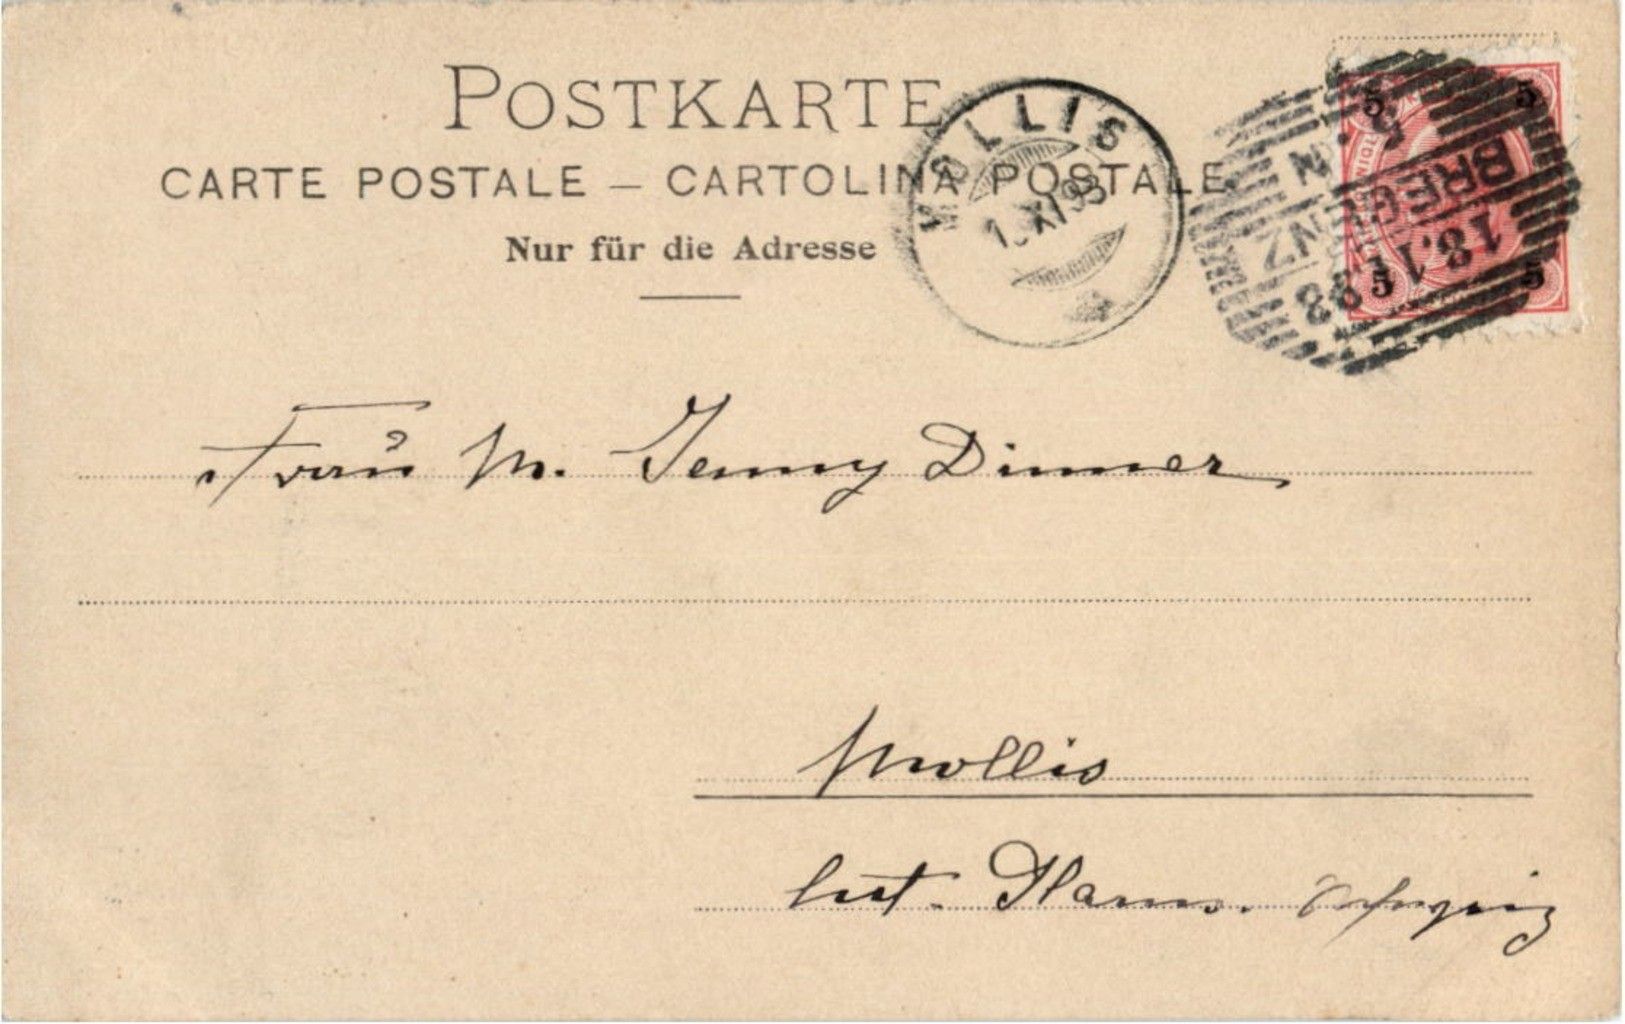 POSTKARTE
CARTE POSTALE — CARTOLINA POSTALE
Nur für die Adresse
MOLLIS
XI 98
BREGENZ
18.11.98
5 5
5 5
Frau M. Jenny Dinner
Mollis
Ct. Glarus. Schweiz